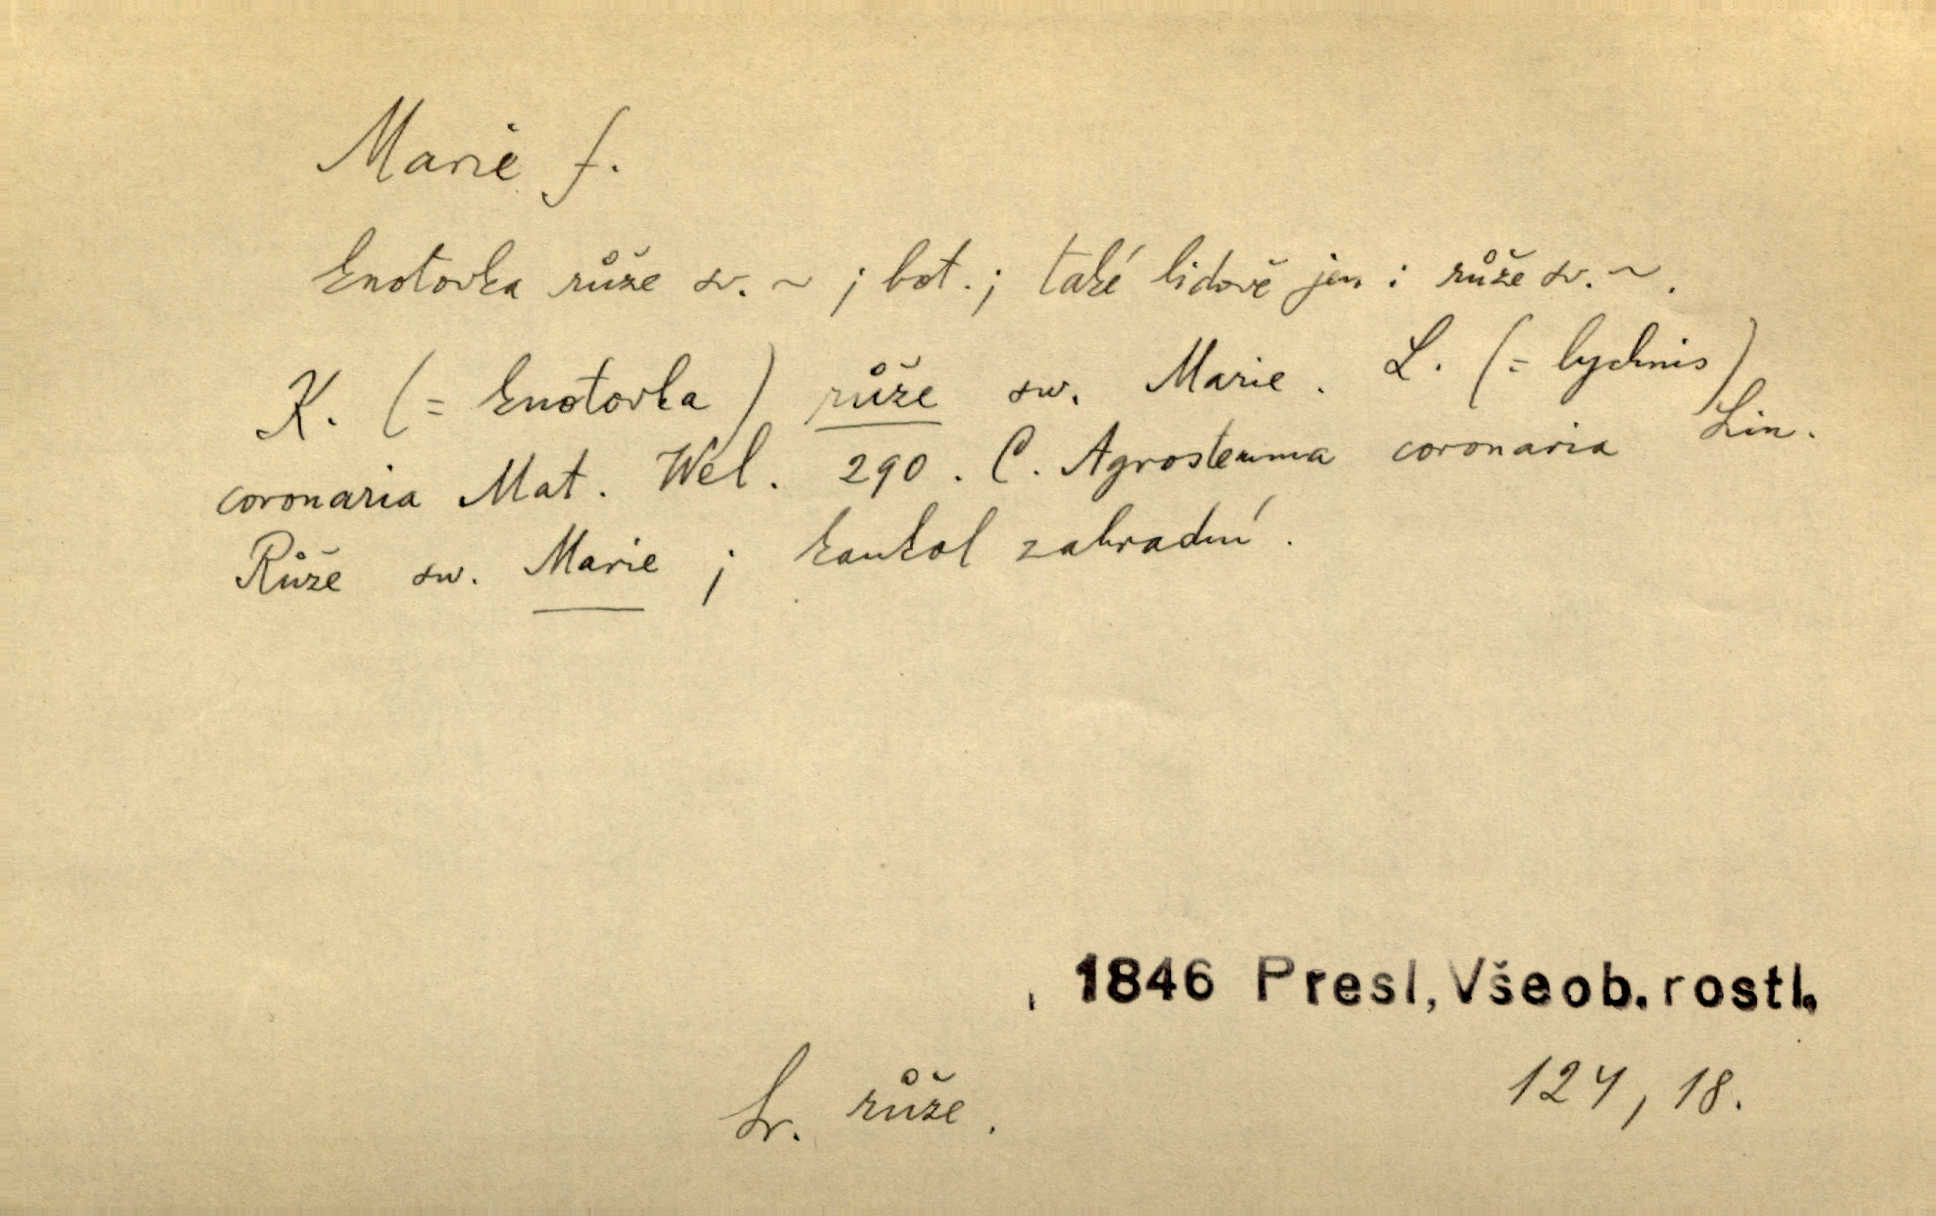 Marie f.
knotovka růže sv. ~ ; bot. ; také lidově jen : růže sv. ~ .
K. (= knotovka) růže sw. Marie. L. (= lychnis)
coronaria Mat. Wel. 290. C. Agrostemma coronaria Lin.
Růže sw. Marie ; kaukol zahradní.
1846 Presl, Všeob. rostl.
124, 18.
Sr. růže.